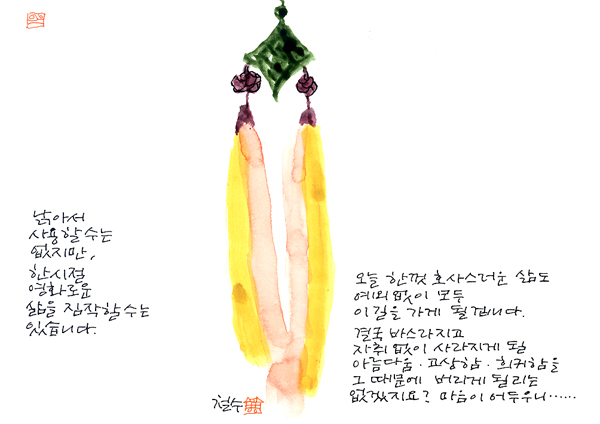 낡아서
사용할 수는
없지만,
한시절
영화로운
삶을 짐작할 수는
있습니다.
오늘 한껏 호사스러운 삶도
예외 없이 모두
이 길을 가게 될 겁니다.
결국 바스라지고
자취 없이 사라지게 될
아름다움·고상함·희귀함을
그 때문에 버리게 될 리는
없겠지요? 마음이 어두우니……
철수